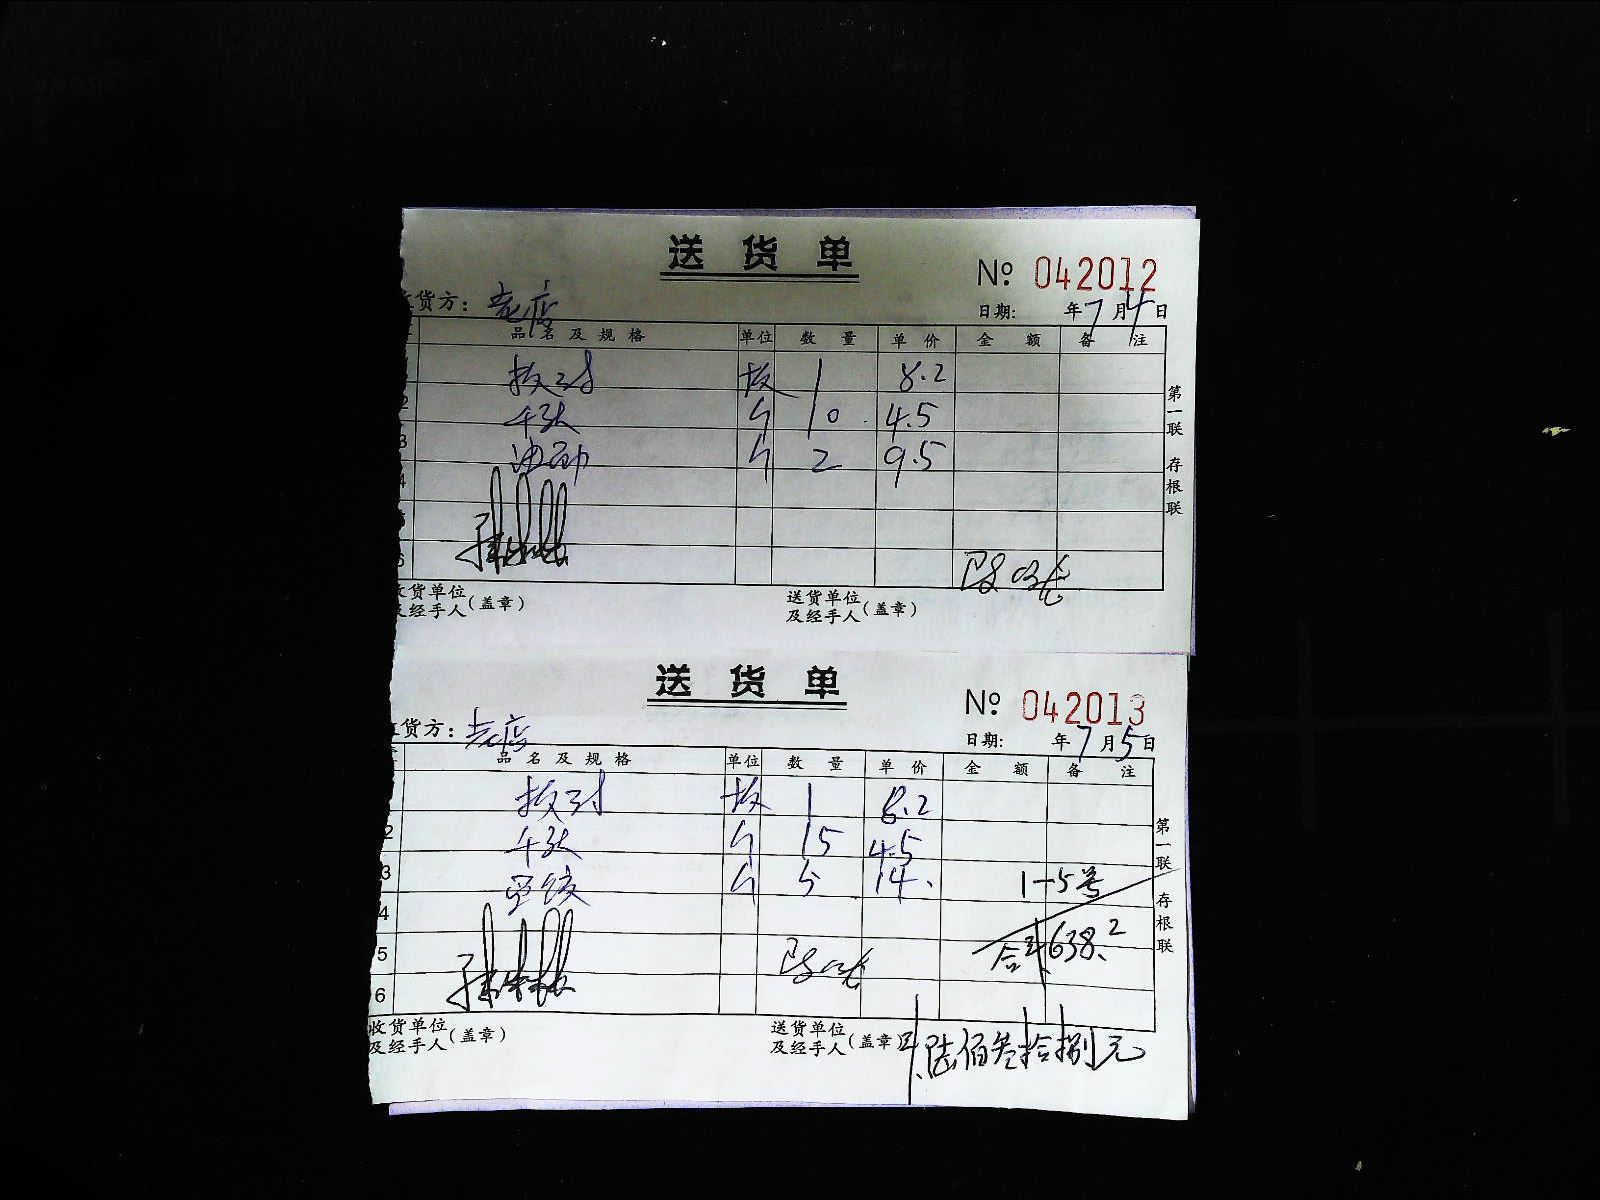 送 货 单
№ 042012
收货方: 老店
日期: 年 7 月 4 日
品 名 及 规 格 单位 数 量 单 价 金 额 备 注
板 1 8.2
2 千张 10 4.5
3 油 2 9.5
4
5
6
收货单位及经手人(盖章)
送货单位及经手人(盖章)
第一联 存根联
送 货 单
№ 042013
收货方: 老店
日期: 年 7 月 5 日
品 名 及 规 格 单位 数 量 单 价 金 额 备 注
板 1 8.2
2 千张 15 4.5
3 5 14. 1-5号
4
5 合计638.2
6
收货单位及经手人(盖章)
送货单位及经手人(盖章)
陆佰叁拾捌元
第一联 存根联